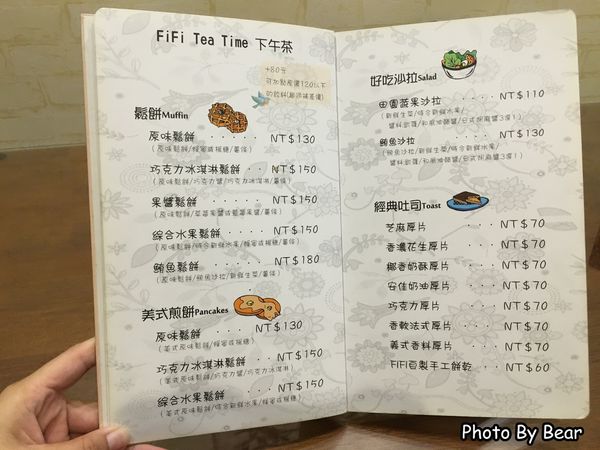 FiFi Tea Time 下午茶
+80元
可加點原價120以下
的飲料(超過補差價)
鬆餅Muffin
原味鬆餅 ‧‧‧‧‧ NT$130
(原味鬆餅/蜂蜜或楓糖/薯條)
巧克力冰淇淋鬆餅 ‧‧ NT$150
(原味鬆餅/巧克力醬/巧克力冰淇淋/薯條)
果醬鬆餅 ‧‧‧‧‧ NT$150
綜合水果鬆餅 ‧‧‧ NT$150
(原味鬆餅/綜合新鮮水果/蜂蜜或楓糖/薯條)
鮪魚鬆餅 ‧‧‧‧‧ NT$180
(原味鬆餅/鮪魚沙拉/新鮮生菜/薯條)
美式煎餅Pancakes
原味鬆餅 ‧‧‧‧ NT$130
(美式原味鬆餅/蜂蜜或楓糖)
巧克力冰淇淋鬆餅 ‧‧ NT$150
(美式原味鬆餅/巧克力醬/巧克力冰淇淋)
綜合水果鬆餅 ‧‧‧ NT$150
(美式原味鬆餅/綜合新鮮水果/蜂蜜或楓糖)
好吃沙拉Salad
田園蔬果沙拉 ‧‧‧‧ NT$110
鮪魚沙拉 ‧‧‧‧‧ NT$130
經典吐司Toast
芝麻厚片 ‧‧‧‧ NT$70
香濃花生厚片 ‧‧ NT$70
椰香奶酥厚片 ‧‧ NT$70
安佳奶油厚片 ‧‧ NT$70
巧克力厚片 ‧‧‧ NT$70
香軟法式厚片 ‧‧ NT$70
義式香料厚片 ‧‧ NT$70
FiFi自製手工餅乾 ‧‧ NT$60
Photo By Bear